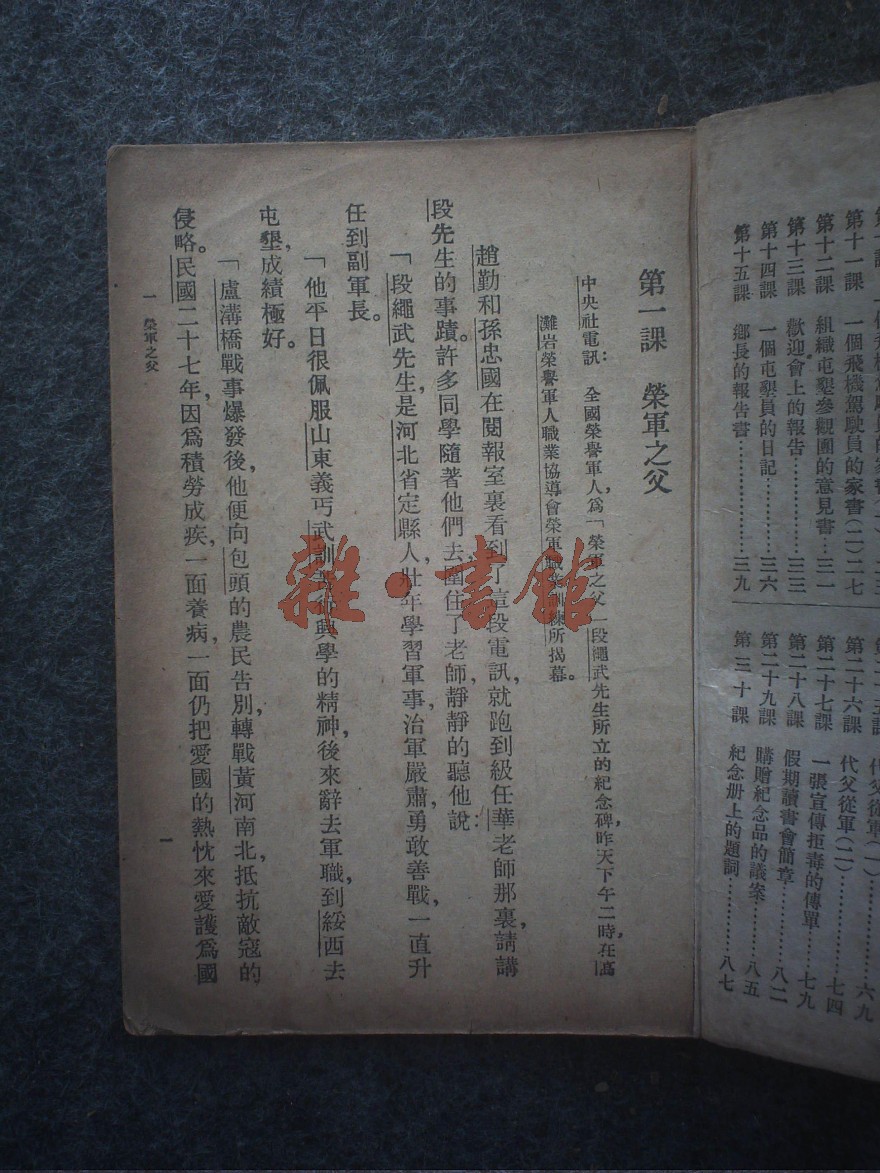 第十一課 一個飛機駕駛員的家書(二)二七
第十二課 組織屯墾參觀團的意見書…三一
第十三課 歡迎會上的報告…………三三
第十四課 一個屯墾員的日記…………三六
第十五課 鄉長的報告書………………三九
第二十六課 代父從軍(二)…………七四
第二十七課 一張宣傳拒毒的傳單……七九
第二十八課 假期讀書會簡章…………八二
第二十九課 購贈紀念品的議案………八五
第三十課 紀念册上的題詞…………八七
第一課 榮軍之父
中央社電訊: 全國榮譽軍人,爲「榮軍之父」段繩武先生所立的紀念碑,昨天下午二時,在高
灘岩榮譽軍人職業協導會榮軍職業訓練所揭幕。
趙勤和孫忠國在閱報室裏看到了這段電訊,就跑到級任華老師那裏,請講
段先生的事蹟。許多同學隨著他們去,圍住了老師,靜靜的聽他說:
「段繩武先生,是河北省定縣人,壯年學習軍事,治軍嚴肅,勇敢善戰,一直升
任到副軍長。
「他平日很佩服山東義丐武訓興學的精神,後來辭去軍職,到綏西去
屯墾,成績極好。
「盧溝橋戰事爆發後,他便向包頭的農民告別,轉戰黃河南北,抵抗敵寇的
侵略。民國二十七年,因爲積勞成疾,一面養病,一面仍把愛國的熱忱來愛護爲國
一 榮軍之父
一
雜·書館